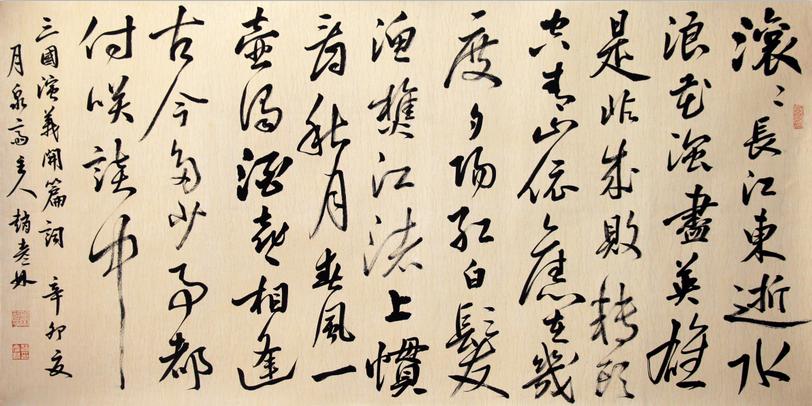 滾〻長江東逝水
浪花淘盡英雄
是非成敗轉頭
空青山依舊在幾
度夕陽紅白髮
漁樵江渚上慣
看秋月春風一
壺濁酒喜相逢
古今多少事都
付咲談中
三國演義開篇詞 辛卯夏
月泉齋主人趙